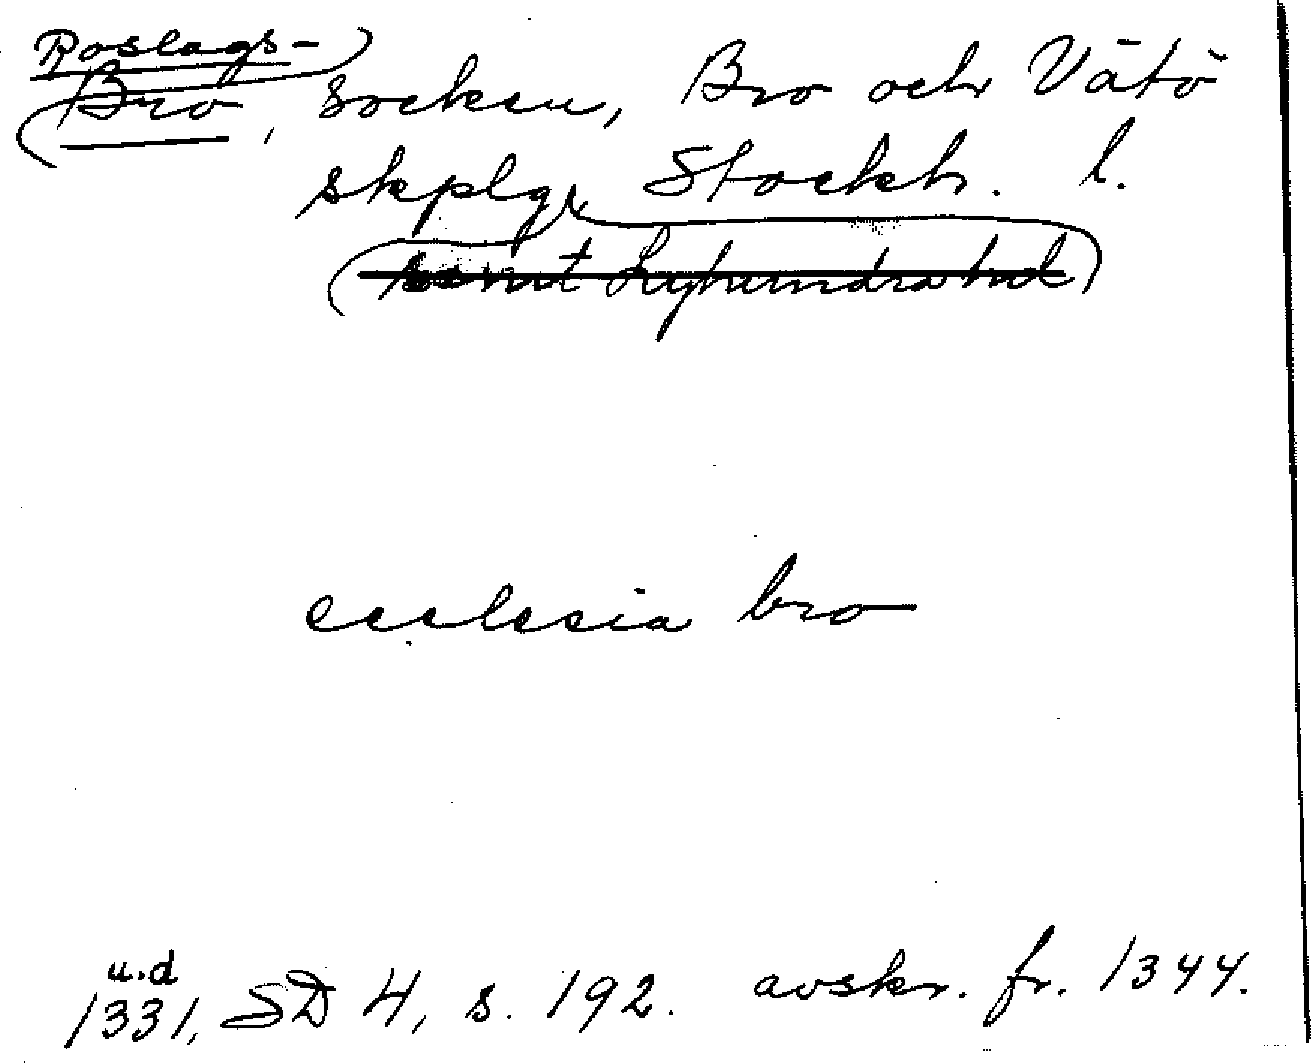 Roslags-
Bro, socken, Bro och Vätö
skplg, Stockh. l.
(samt Lyhundra hd)
ecclesia bro
u.d
1331, SD 4, s. 192. avskr. fr. 1344.